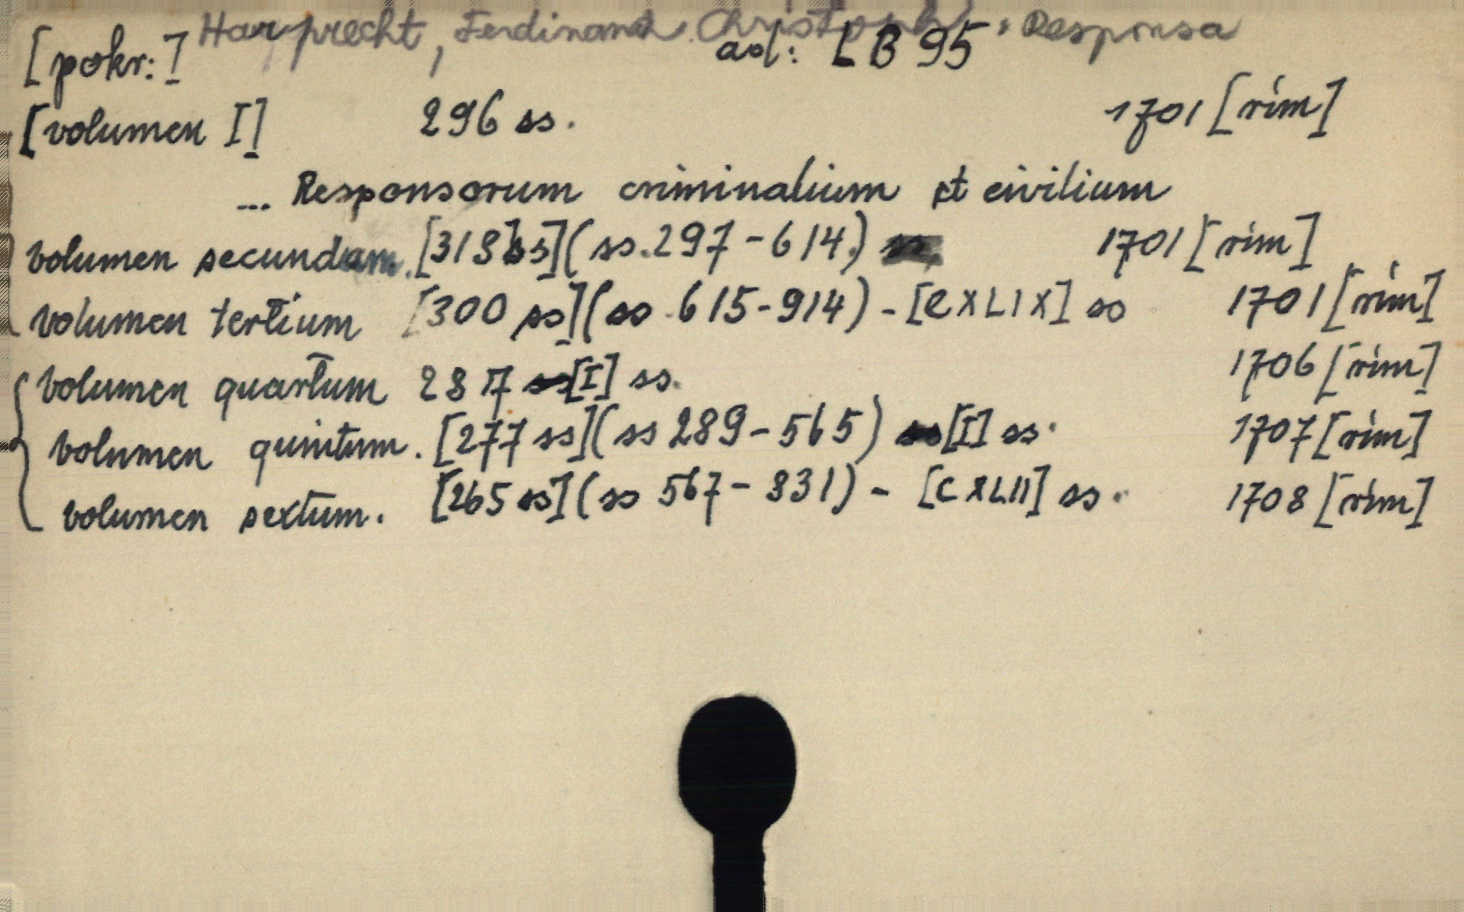 Harpprecht, Ferdinand Christoph: Responsa
[pokr:] ad: LB 95
[volumen I] 296 ss. 1701 [rím]
... Responsorum criminalium et civilium
volumen secundam. [318 ss] (ss. 297-614.) 1701 [rím]
volumen tertium [300 ss] (ss. 615-914) - [CXLIX] ss 1701 [rím]
volumen quartum 287 [I] ss. 1706 [rím]
volumen quintum. [277 ss] (ss 289-565) [I] ss. 1707 [rím]
volumen sextum. [265 ss] (ss 567-831) - [CXLII] ss. 1708 [rím]